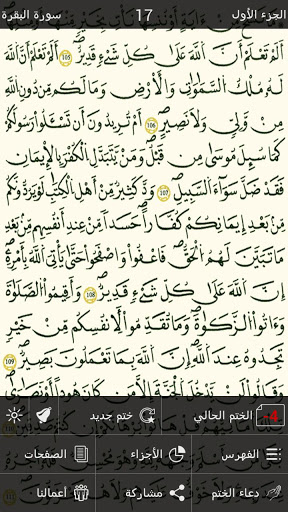 الجزء الأول 17 سورة البقرة
أَلَمْ تَعْلَمْ أَنَّ اللَّهَ عَلَىٰ كُلِّ شَيْءٍ قَدِيرٌ 106 أَلَمْ تَعْلَمْ أَنَّ اللَّهَ
لَهُ مُلْكُ السَّمَاوَاتِ وَالْأَرْضِ وَمَا لَكُم مِّن دُونِ اللَّهِ
مِن وَلِيٍّ وَلَا نَصِيرٍ 106 أَمْ تُرِيدُونَ أَن تَسْأَلُوا رَسُولَكُمْ
كَمَا سُئِلَ مُوسَىٰ مِن قَبْلُ وَمَن يَتَبَدَّلِ الْكُفْرَ بِالْإِيمَانِ
فَقَدْ ضَلَّ سَوَاءَ السَّبِيلِ 107 وَدَّ كَثِيرٌ مِّنْ أَهْلِ الْكِتَابِ لَوْ يَرُدُّونَكُم
مِّن بَعْدِ إِيمَانِكُمْ كُفَّارًا حَسَدًا مِّنْ عِندِ أَنفُسِهِم مِّن بَعْدِ
مَا تَبَيَّنَ لَهُمُ الْحَقُّ فَاعْفُوا وَاصْفَحُوا حَتَّىٰ يَأْتِيَ اللَّهُ بِأَمْرِهِ
إِنَّ اللَّهَ عَلَىٰ كُلِّ شَيْءٍ قَدِيرٌ 108 وَأَقِيمُوا الصَّلَاةَ
وَآتُوا الزَّكَاةَ وَمَا تُقَدِّمُوا لِأَنفُسِكُم مِّنْ خَيْرٍ
تَجِدُوهُ عِندَ اللَّهِ إِنَّ اللَّهَ بِمَا تَعْمَلُونَ بَصِيرٌ 109
وَقَالُوا لَن يَدْخُلَ الْجَنَّةَ إِلَّا مَن كَانَ هُودًا أَوْ نَصَارَىٰ
-4 الختم الحالي ختم جديد
الفهرس الأجزاء الصفحات
دعاء الختم مشاركة اعمالنا